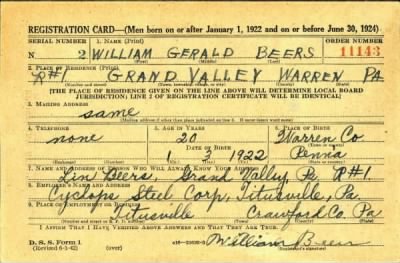 REGISTRATION CARD—(Men born on or after January 1, 1922 and on or before June 30, 1924)
SERIAL NUMBER 1. NAME (Print) ORDER NUMBER
N 2 WILLIAM GERALD BEERS 11143
2. PLACE OF RESIDENCE (Print)
R#1 GRAND VALLEY WARREN PA
[THE PLACE OF RESIDENCE GIVEN ON THE LINE ABOVE WILL DETERMINE LOCAL BOARD
JURISDICTION; LINE 2 OF REGISTRATION CERTIFICATE WILL BE IDENTICAL]
3. MAILING ADDRESS
same
[Mailing address if other than place indicated on line 2. If same insert word same]
4. TELEPHONE 5. AGE IN YEARS 6. PLACE OF BIRTH
none 20 Warren Co
DATE OF BIRTH
1 2 1922 Penna
(Exchange) (Number) (Mo.) (Day) (Yr.) (State or country)
7. NAME AND ADDRESS OF PERSON WHO WILL ALWAYS KNOW YOUR ADDRESS
Beers, Grand Valley Pa R#1
8. EMPLOYER'S NAME AND ADDRESS
Cyclops Steel Corp, Titusville, Pa.
9. PLACE OF EMPLOYMENT OR BUSINESS
Titusville Crawford Co. Pa
I AFFIRM THAT I HAVE VERIFIED ABOVE ANSWERS AND THAT THEY ARE TRUE.
D. S. S. Form 1 William Beers
(Revised 6-1-42) (over) (Registrant's signature)